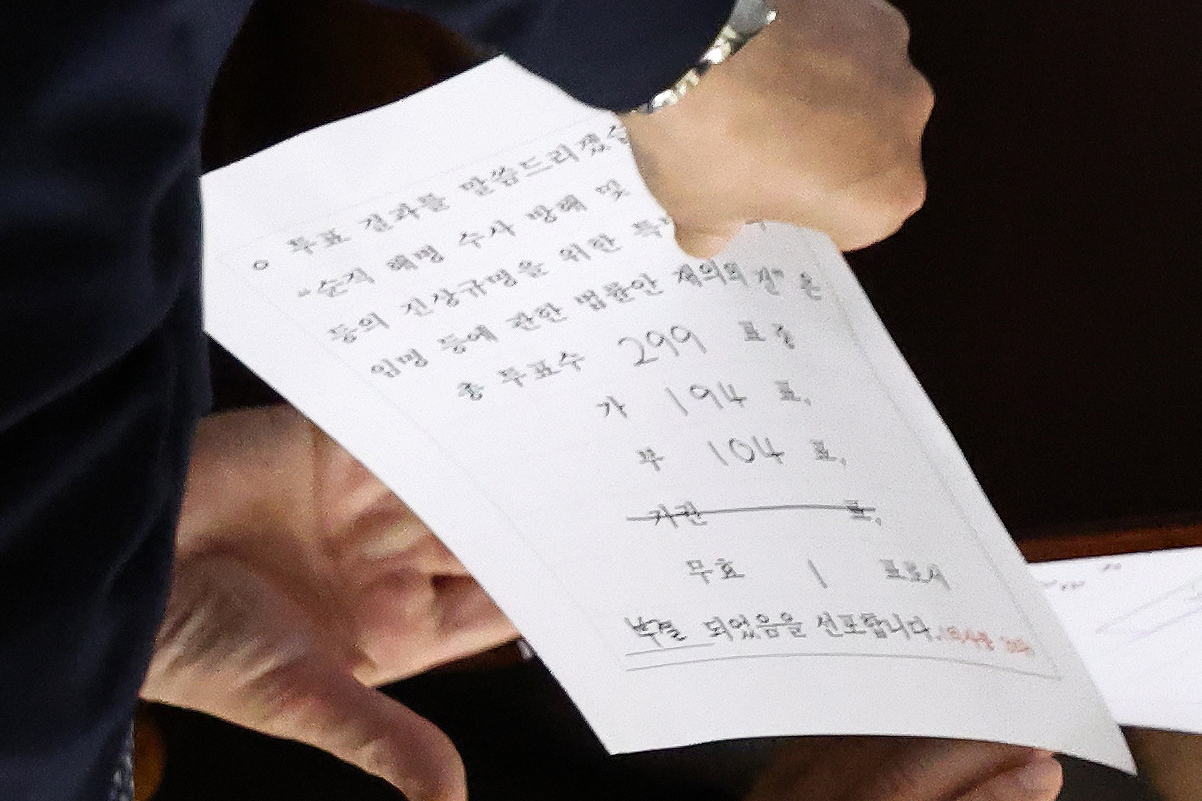 ○ 투표 결과를 말씀드리겠습
"순직 해병 수사 방해 및
등의 진상규명을 위한 특
임명 등에 관한 법률안 재의의 건"은
총 투표수 299 표 중
가 194 표,
부 104 표,
기권 표,
무효 1 표로서
부결 되었음을 선포합니다.